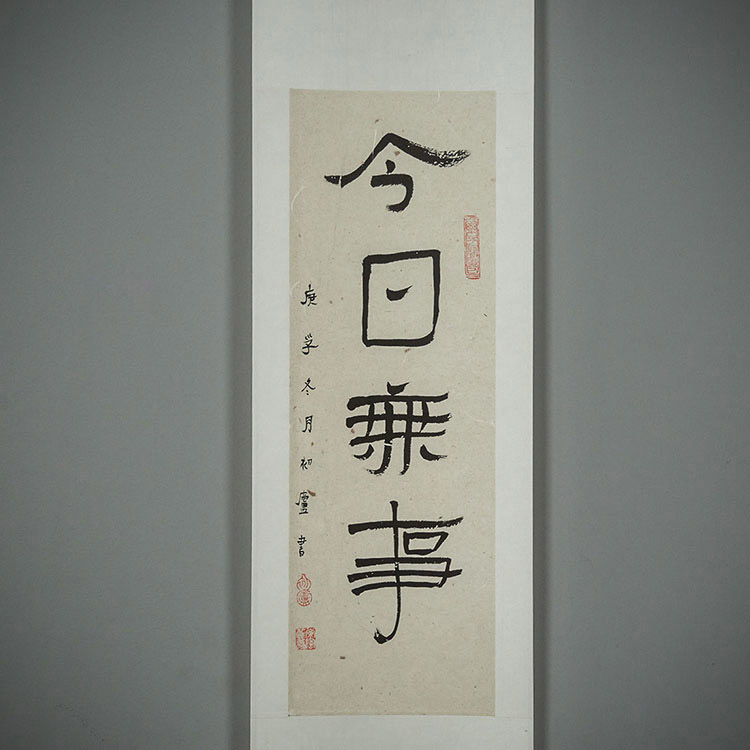 今日無事
庚子冬月初盧書